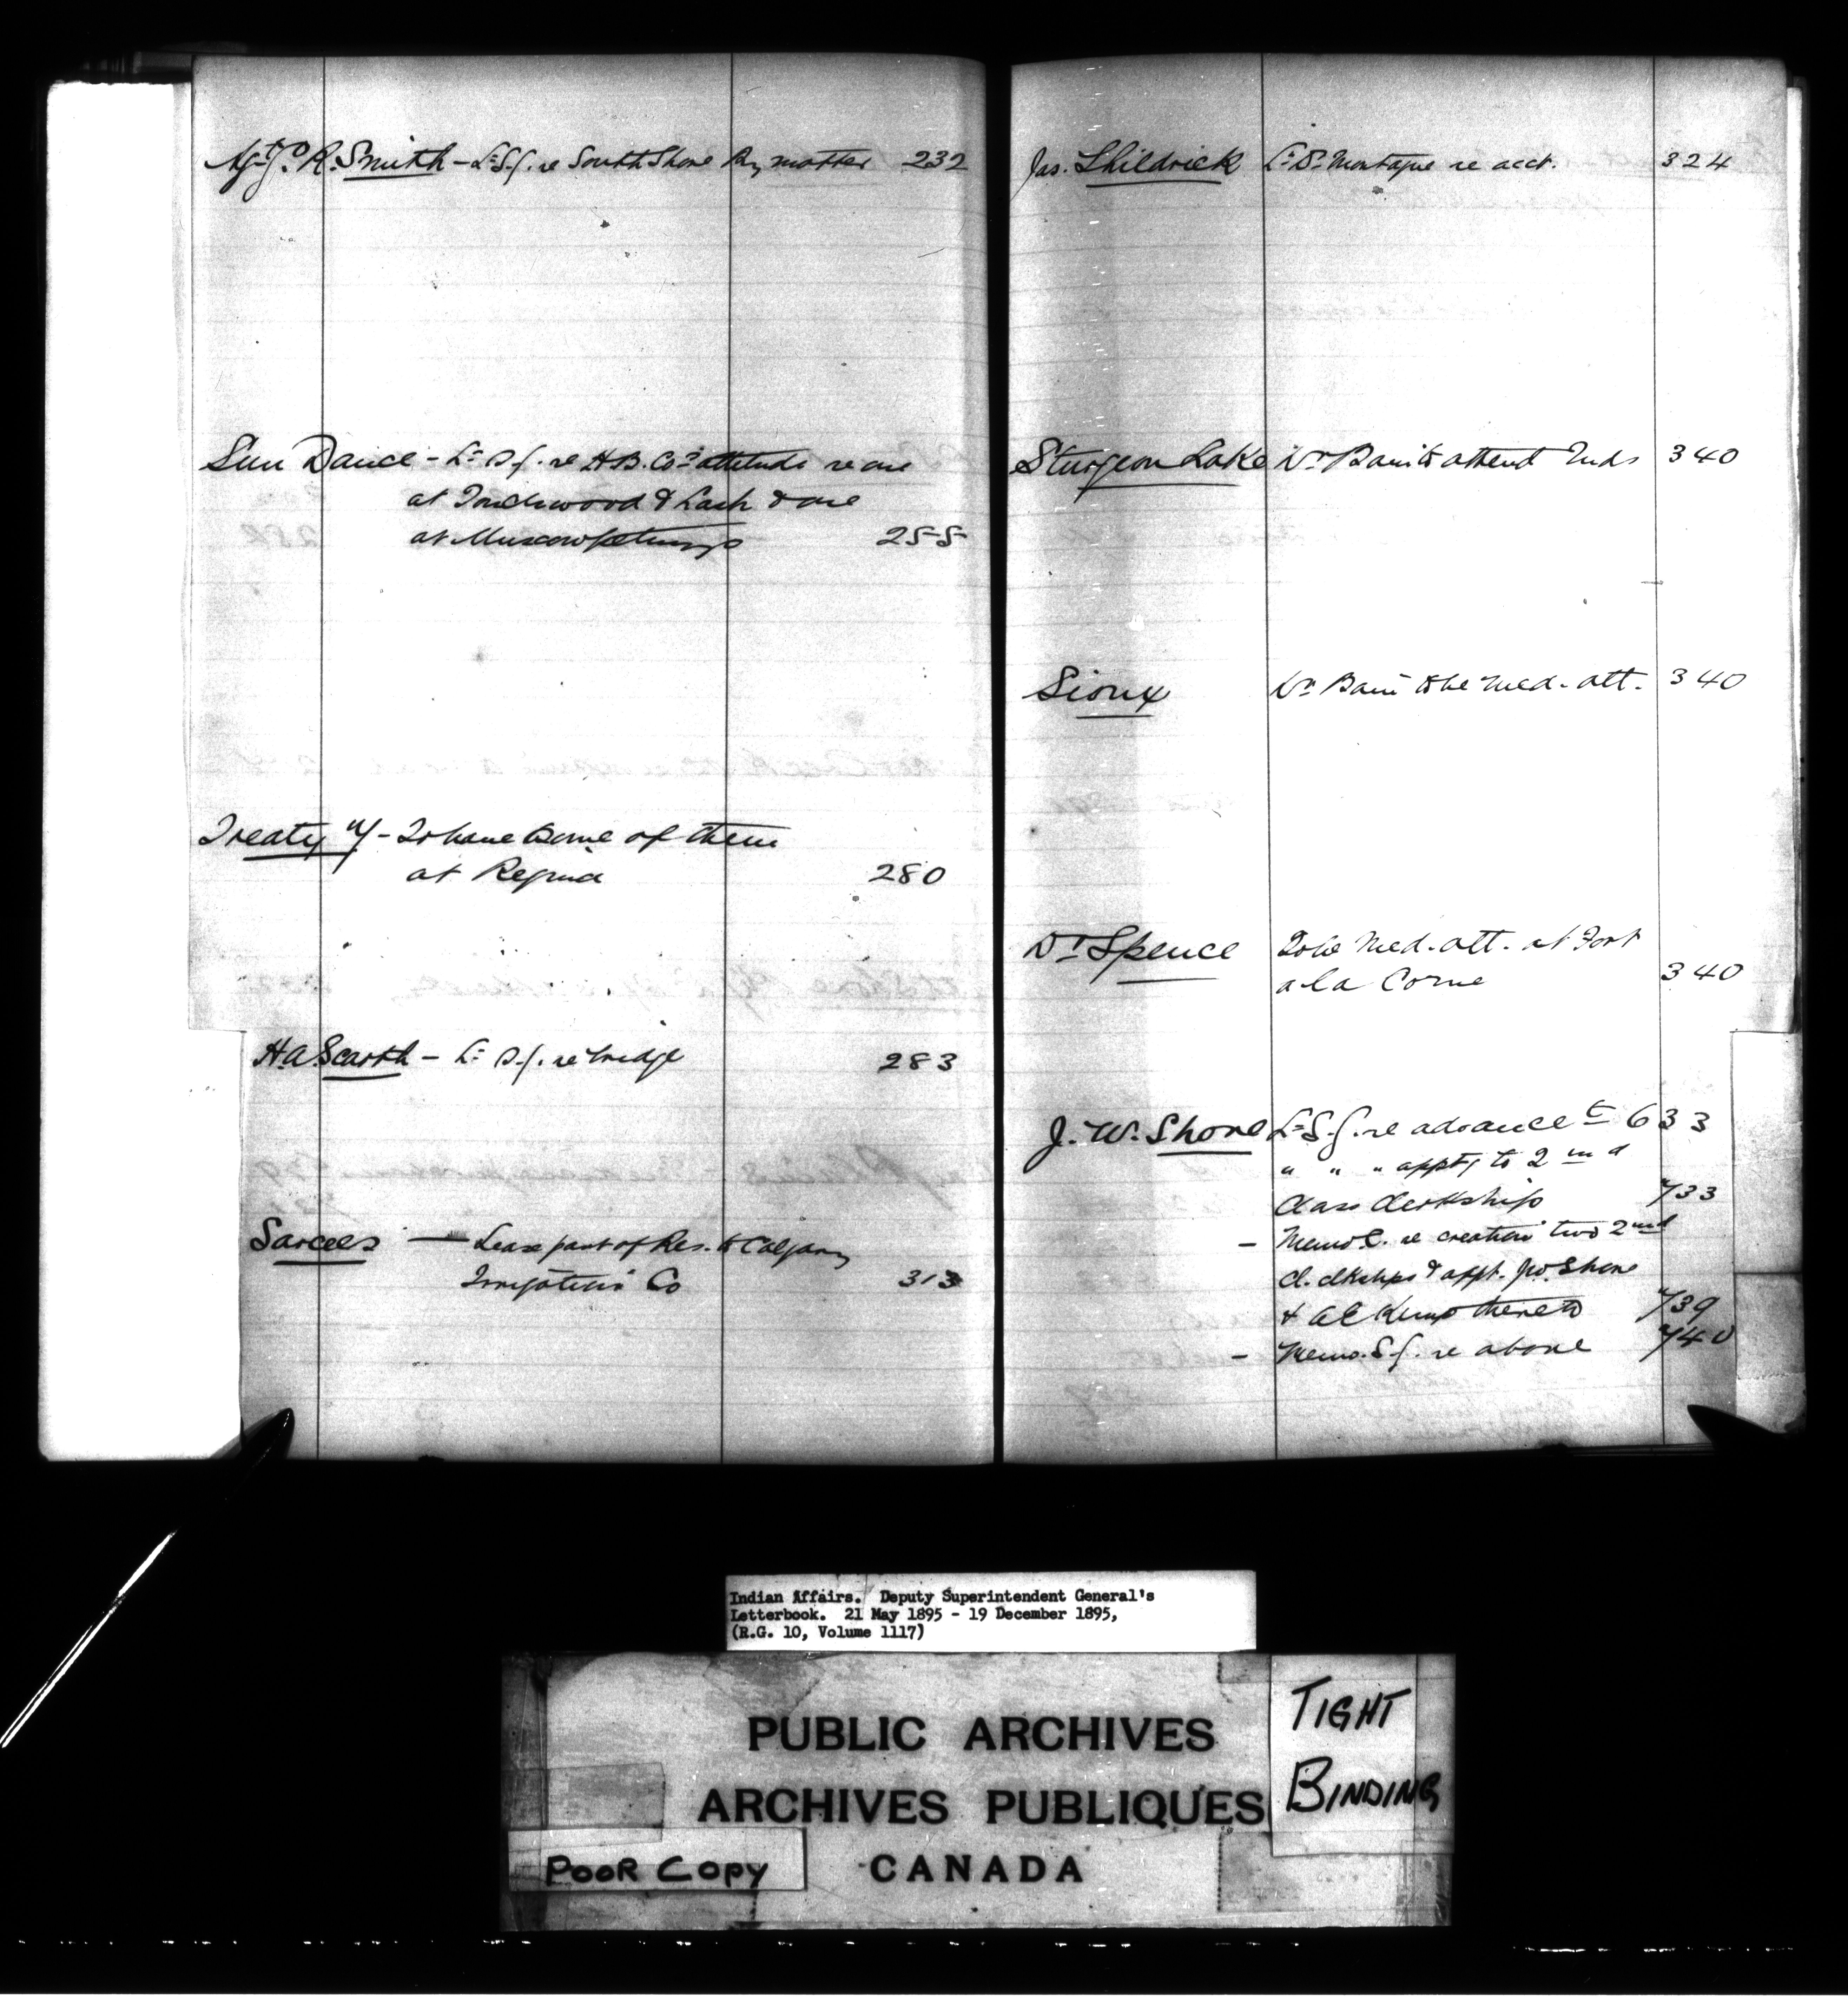 R. Smith – L. S. G. re South Shore Ry matter 232
Sun Dance – L. S. G. re H. B. Co's attitude re one
at Touchwood & Lash & one
at Muscowpetungs 255
Treaty 4 – To have some of them
at Regina 280
H. A. Scarth – L. S. G. re bridge 283
Sarcees — Lease part of Res. to Calgary
Irrigation Co 313
Jas. Shildrick L. Dr Montague re acct. 324
Sturgeon Lake Dr Bain to attend Inds 340
Sioux Dr Bain to be Med. att. 340
Dr Spence To be Med. att. at Fort
a la Corne 340
J. W. Shore L. S. G. re advance to 633
" " " appt to 2nd
Class Clerkship 733
– Memo C. re creation two 2nd
Cl. clkships & appt. Jno. Shore
& A E Kemp thereto 739
– Memo. S. G. re above 740
Indian Affairs. Deputy Superintendent General's
Letterbook. 21 May 1895 - 19 December 1895,
(R.G. 10, Volume 1117)
PUBLIC ARCHIVES
ARCHIVES PUBLIQUES
CANADA
TIGHT
BINDING
POOR COPY